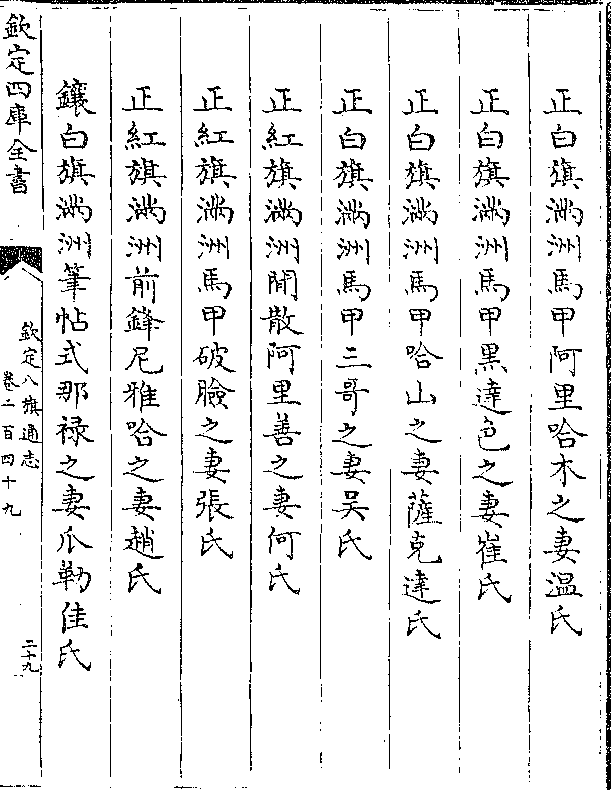 正白旗滿洲馬甲阿里哈木之妻温氏
正白旗滿洲馬甲黒達色之妻崔氏
正白旗滿洲馬甲哈山之妻薩克達氏
正白旗滿洲馬甲三哥之妻吴氏
正紅旗滿洲閒散阿里善之妻何氏
正紅旗滿洲馬甲破臉之妻張氏
正紅旗滿洲前鋒尼雅哈之妻趙氏
鑲白旗滿洲筆帖式那禄之妻瓜勒佳氏
欽定四庫全書
欽定八旗通志
卷二百四十九
二十九